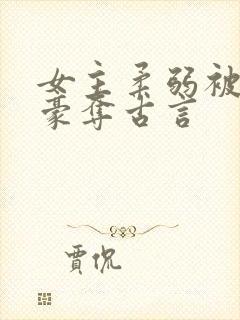 女主柔弱被
豪夺古言
贾侃